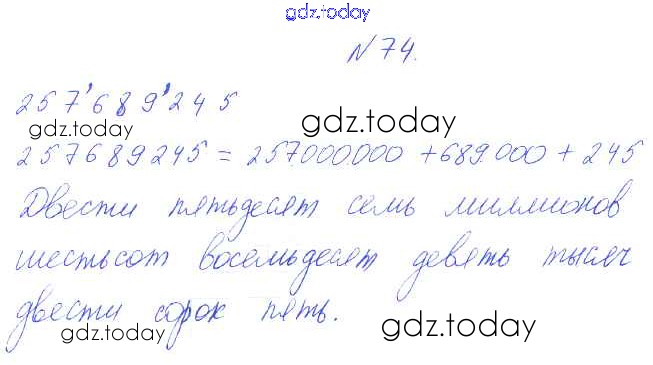 gdz.today
N 74.
257'689'245
gdz.today gdz.today
257689245 = 257000.000 + 689.000 + 245
Двести пятьдесят семь миллионов
шестьсот восемьдесят девять тысяч
двести сорок пять.
gdz.today gdz.today